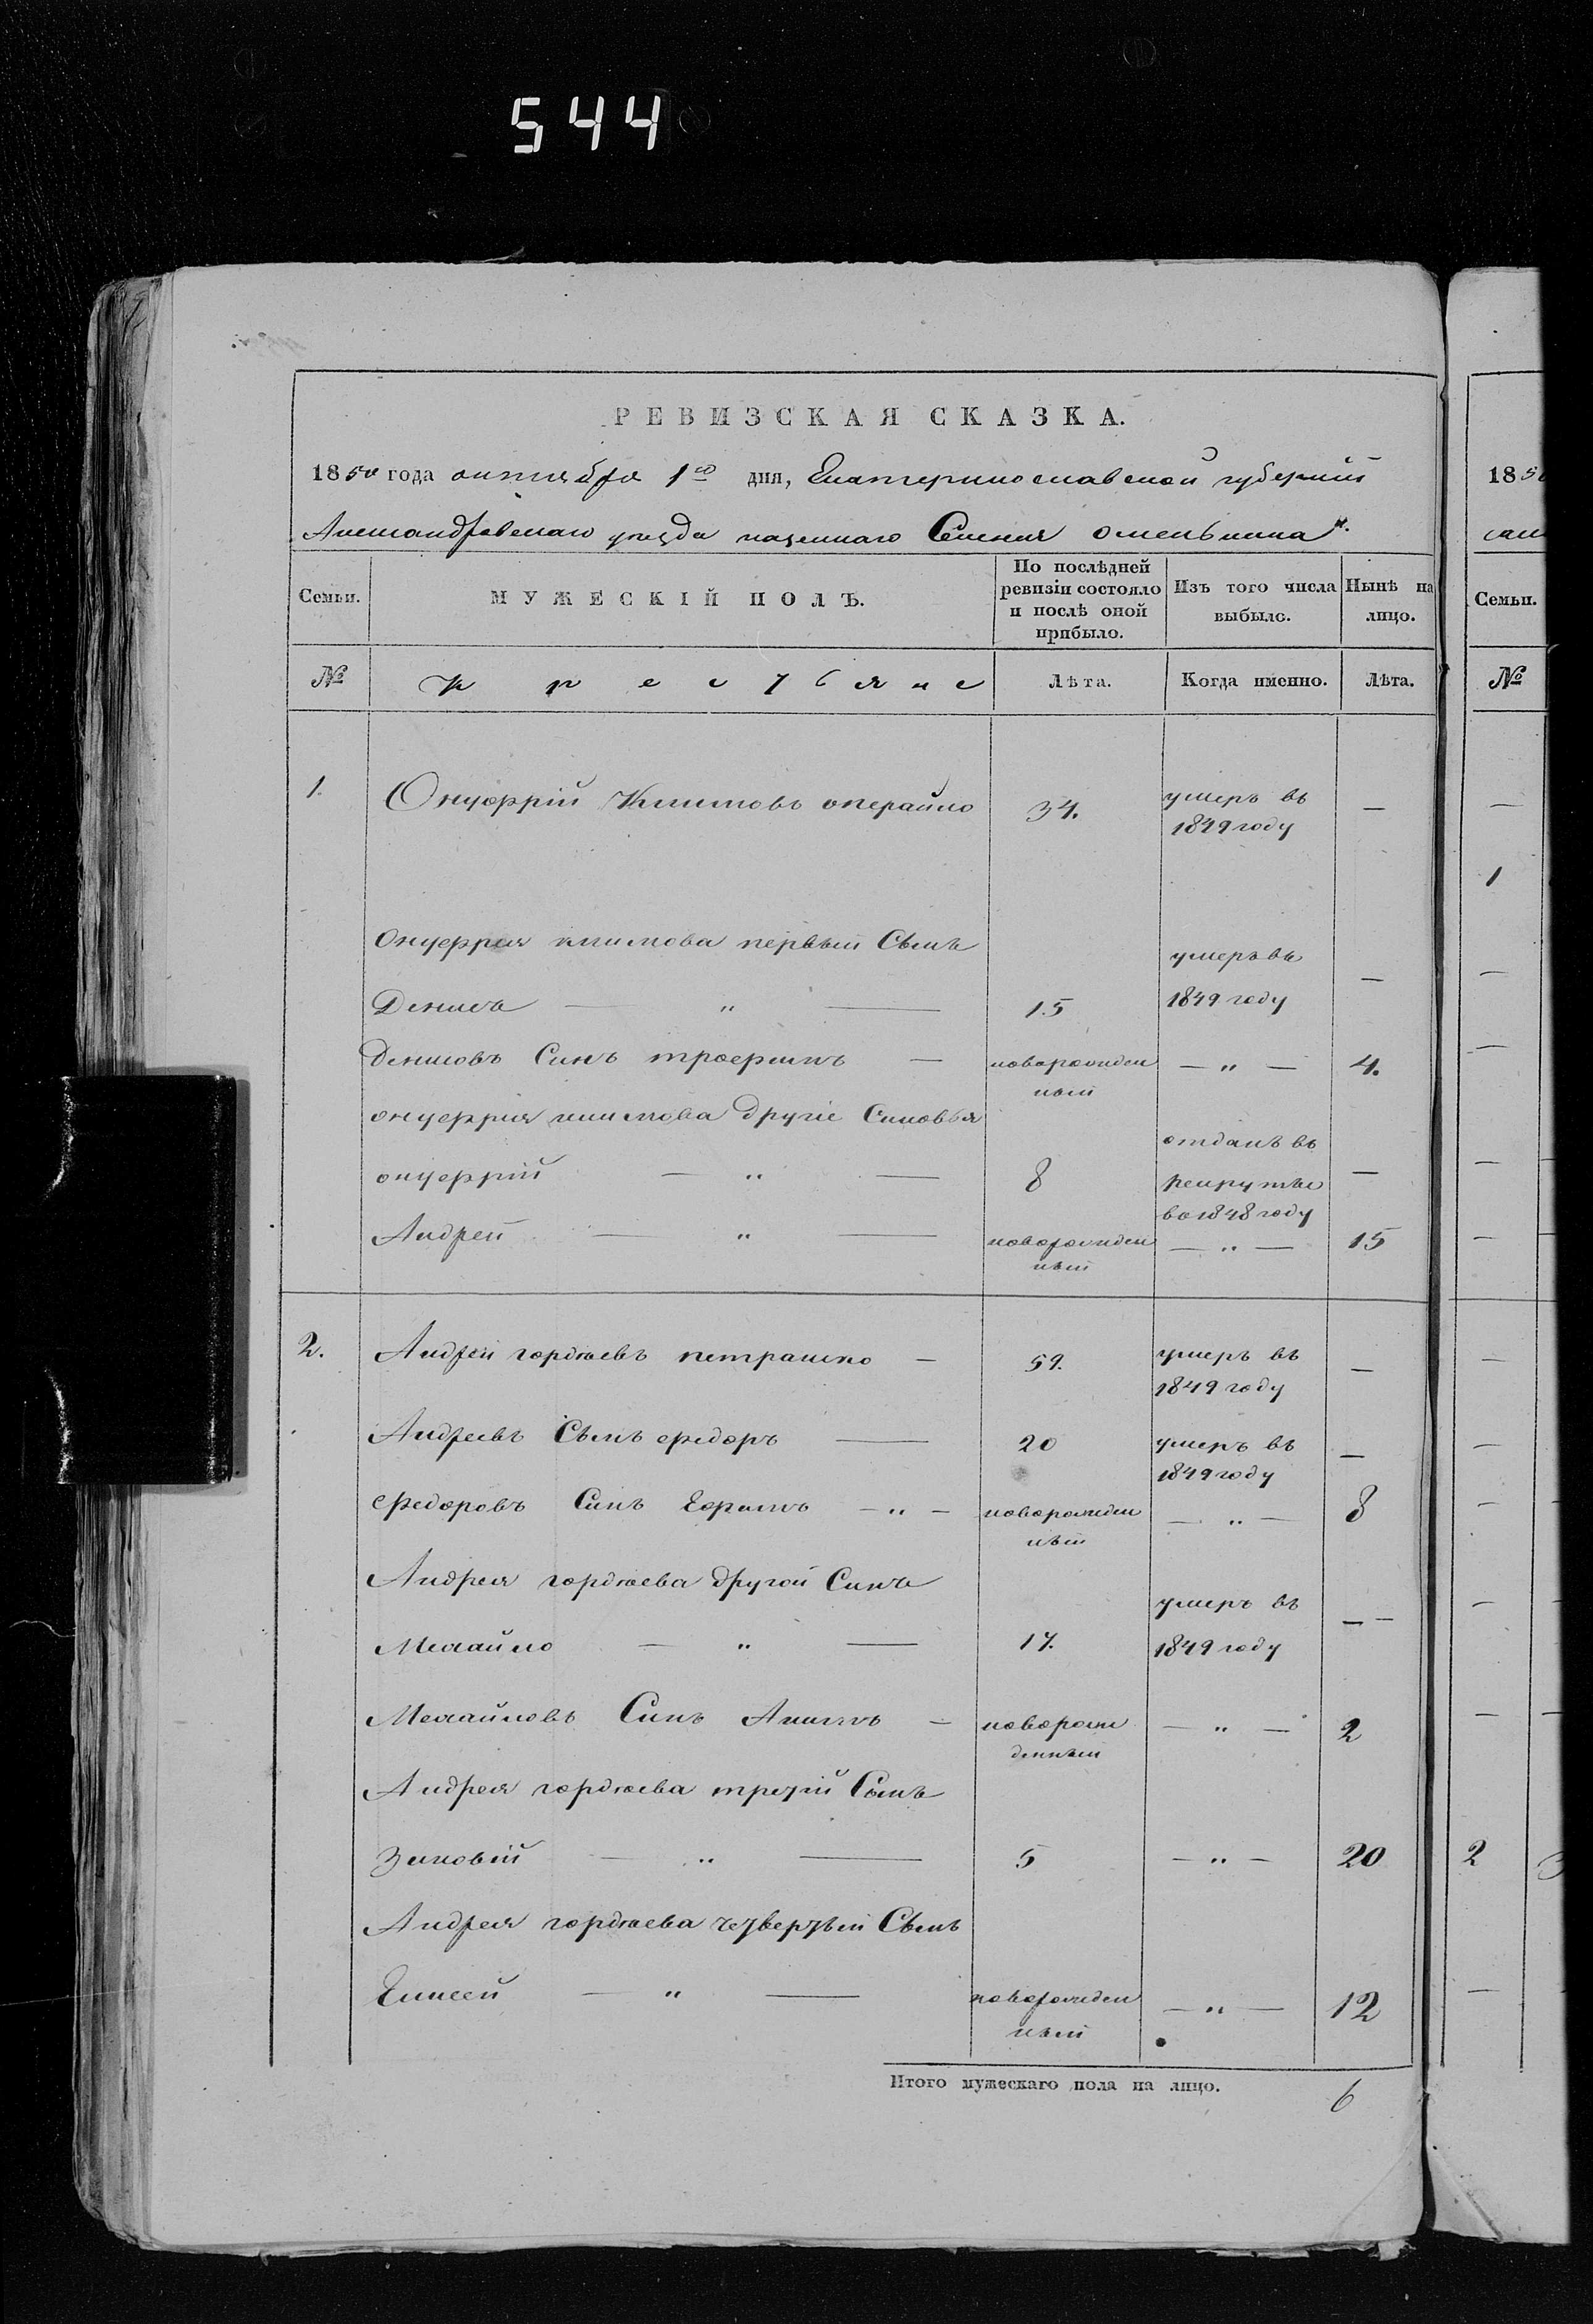 544
РЕВИЗСКАЯ СКАЗКА.
1850 года октября 1го дня, Екатеринославской губернии
Александровскаго уезда казеннаго Селения омельника.
Семьи.
МУЖЕСКІЙ ПОЛЪ.
По послѣдней ревизіи состояло и послѣ оной прибыло.
Изъ того числа выбыло.
Нынѣ на лицо.
№
крестьяне
Лѣта.
Когда именно.
Лѣта.
1. Онуфрій Климовъ 34. умеръ въ 1849 году —
Онуфрия климова первый Сынъ
Денисъ — " — 15 умеръ въ 1849 году —
Денисовъ Синъ трофимъ — новорожденный — " — 4.
онуфрия климова другіе Синовья
онуфрій — " — 8 отданъ въ рекруты в 1848 году —
Андрей — " — новорожденный — " — 15
2. Андрей гордѣевъ петрашко — 59. умеръ въ 1849 году —
Андреевъ Сынъ федоръ — 20 умеръ въ 1849 году —
Федоровъ Синъ Ефимъ — " — новорожденный — " — 8
Андрея гордѣева другой Синъ
Михайло — " — 17. умеръ въ 1849 году — —
Михайловъ Синъ Акимъ — новорожденный — " — 2
Андрея гордѣева третій Сынъ
Зиновій — " — 5 — " — 20
Андрея гордѣева четвертый Сынъ
Елисей — " — новорожденный — " — 12
Итого мужескаго пола на лицо. 6
185
Семьи.
№
1
2